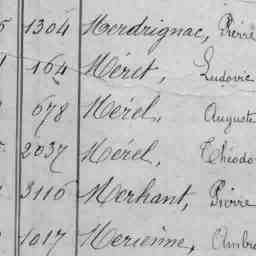 1304 Merdrignac, Pierre
164 Méret, Ludovic
678 Mérel, Auguste
2037 Mérel, Théodo
3116 Merhant, Pierre
1017 Merienne, Ambro